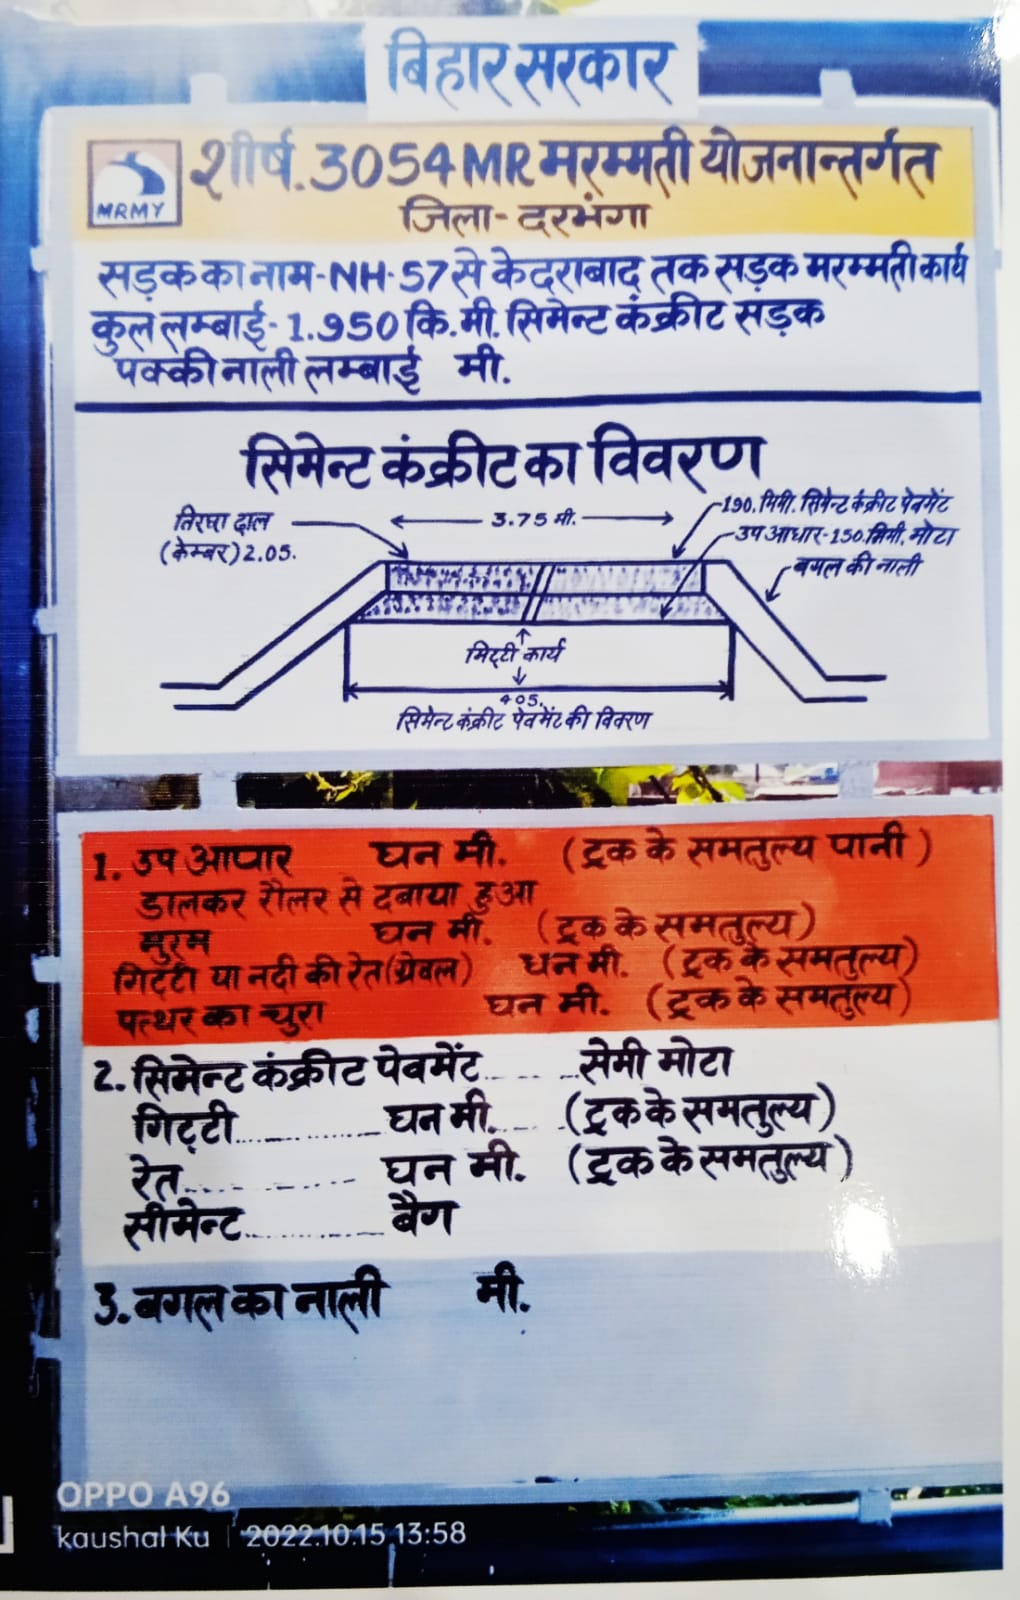 बिहार सरकार
शीर्ष. 3054 MR मरम्मती योजनान्तर्गत
MRMY
जिला- दरभंगा
सड़क का नाम-NH-57 से केदराबाद तक सड़क मरम्मती कार्य
कुल लम्बाई- 1.950 कि.मी. सिमेन्ट कंक्रीट सड़क
पक्की नाली लम्बाई मी.
सिमेन्ट कंक्रीट का विवरण
190. मिमी. सिमेन्ट कंक्रीट पेवमेंट
तिरछा ढाल
3.75 मी.
उप आधार-150 मिमी. मोटा
(केम्बर) 2.05.
बगल की नाली
मिट्टी कार्य
405.
सिमेन्ट कंक्रीट पेवमेंट की विवरण
1. उप आपार घन मी. (ट्रक के समतुल्य पानी)
डालकर रौलर से दबाया हुआ
मुरम घन मी. (ट्रक के समतुल्य)
गिट्टी या नदी की रेत (ग्रेवल) धन मी. (ट्रक के समतुल्य)
पत्थर का चुरा घन मी. (ट्रक के समतुल्य)
2. सिमेन्ट कंक्रीट पेवमेंट..... सेमी मोटा
गिट्टी............ घन मी..... (ट्रक के समतुल्य)
रेत............ घन मी. (ट्रक के समतुल्य)
सीमेन्ट............ बैग
3. बगल का नाली मी.
OPPO A96
kaushal Ku | 2022.10.15 13:58